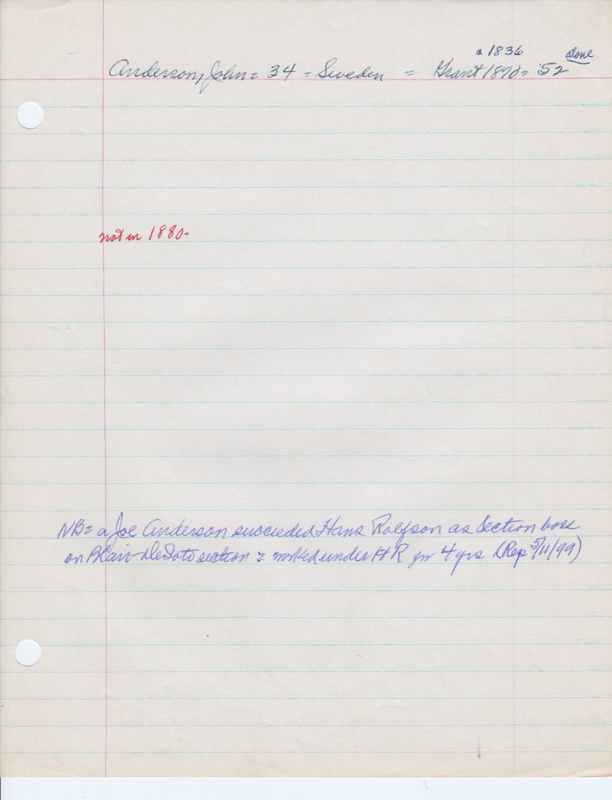 a 1836 done
Anderson, John = 34 = Sweden = Grant 1870 = '52
not in 1880-
NB = a Joe Anderson succeeded Hans Rolfson as Section boss
on Blair-DeSoto section = worked under HR for 4 yrs (Rep 5/11/99)